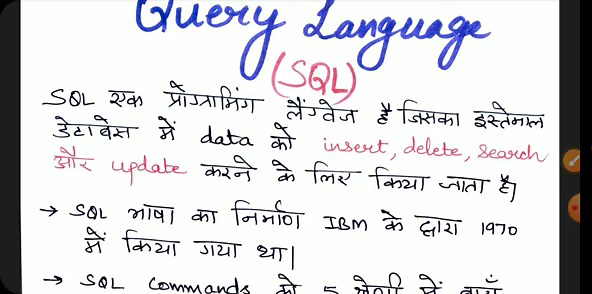 Query Language
(SQL)
SQL एक प्रोग्रामिंग लैंग्वेज है जिसका इस्तेमाल
डेटाबेस में data को insert, delete, search
और update करने के लिए किया जाता है|
→ SQL भाषा का निर्माण IBM के द्वारा 1970
में किया गया था|
→ SQL commands को 5 श्रेणी में